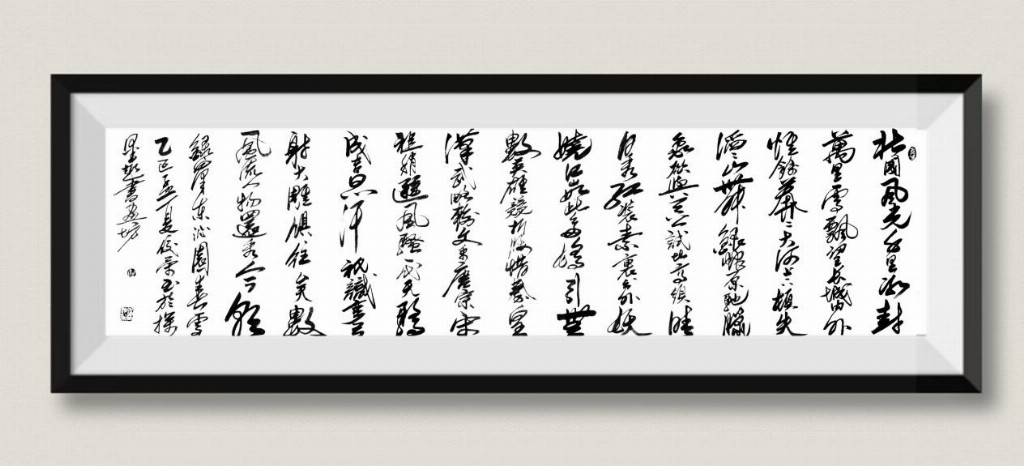 北國風光千里冰封
萬里雪飄望長城內外
惟餘莽〻大河上下頓失
滔〻山舞銀蛇原馳臘
象欲與天公試比高須晴
日看紅裝素裹分外妖
嬈江山如此多嬌引無
數英雄競折腰惜秦皇
漢武略輸文采唐宗宋
祖稍遜風騷一代天驕
成吉思汗祇識彎弓
射大雕俱往矣數
風流人物還看今朝
錄毛澤東沁園春雪
乙巳孟夏俊書於
墨書畫坊